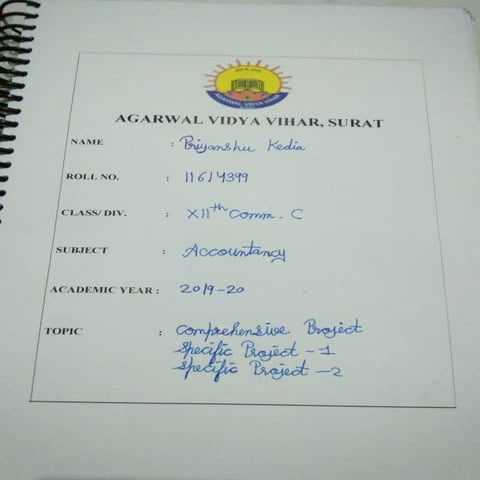 AGARWAL VIDYA VIHAR
AGARWAL VIDYA VIHAR, SURAT
NAME : Priyanshu Kedia
ROLL NO. : 116/4399
CLASS/ DIV. : XIIth Comm. C
SUBJECT : Accountancy
ACADEMIC YEAR : 2019-20
TOPIC : Comprehensive Project
Specific Project - 1
Specific Project - 2